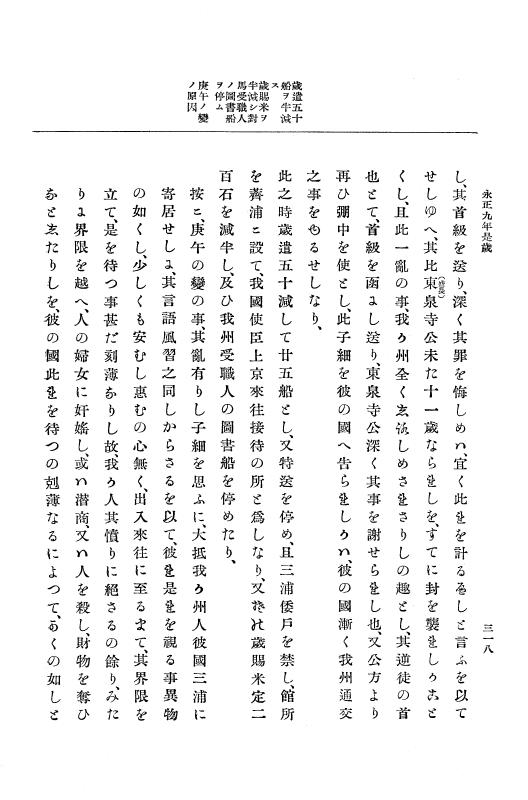 永正九年是歳
三一八
歳遣五十
船ヲ半減
ス
歳賜米ヲ
半減シ對
馬受職人
ノ圖書船
ヲ停ム
庚午ノ變
ノ原因
し、其首級を送り、深く其罪を悔しめハ、宜く此れを計るへしと言ふを以て
せしゆへ、其比東泉寺公未た十一歳ならさしを、すてに封を襲れしうへと
くし、且此一亂の事、我か州全く志ろしめされさりしの趣とし、其逆徒の首
也とて、首級を函よし送り、東泉寺公深く其事を謝せられし也、又公方より
再ひ弸中を使とし、此子細を彼の國へ告られしかハ、彼の國漸く我州通交
之事をゆるせしなり、
此之時歳遣五十減して廿五船とし、又特送を停め、且三浦倭戶を禁し、館所
を薺浦ニ設て、我國使臣上京來往接待の所と爲しなり、又殊ニ歳賜米定二
百石を減半し、及ひ我州受職人の圖書船を停めたり、
按ニ、庚午の變の事、其亂有りし子細を思ふに、大抵我か州人彼國三浦に
寄居せしよ、其言語風習之同しからさるを以て、彼れ是れを視る事異物
の如くし、少しくも安むし惠むの心無く、出入來往に至るまて、其界限を
立て、是を待つ事甚だ刻薄なりし故、我か人其憤りに絕さるの餘り、みた
りよ界限を越へ、人の婦女に奸婬し、或ハ潜商、又ハ人を殺し、財物を奪ひ
なと志たりしを、彼の國此れを待つの剋薄なるによつて、かくの如しと